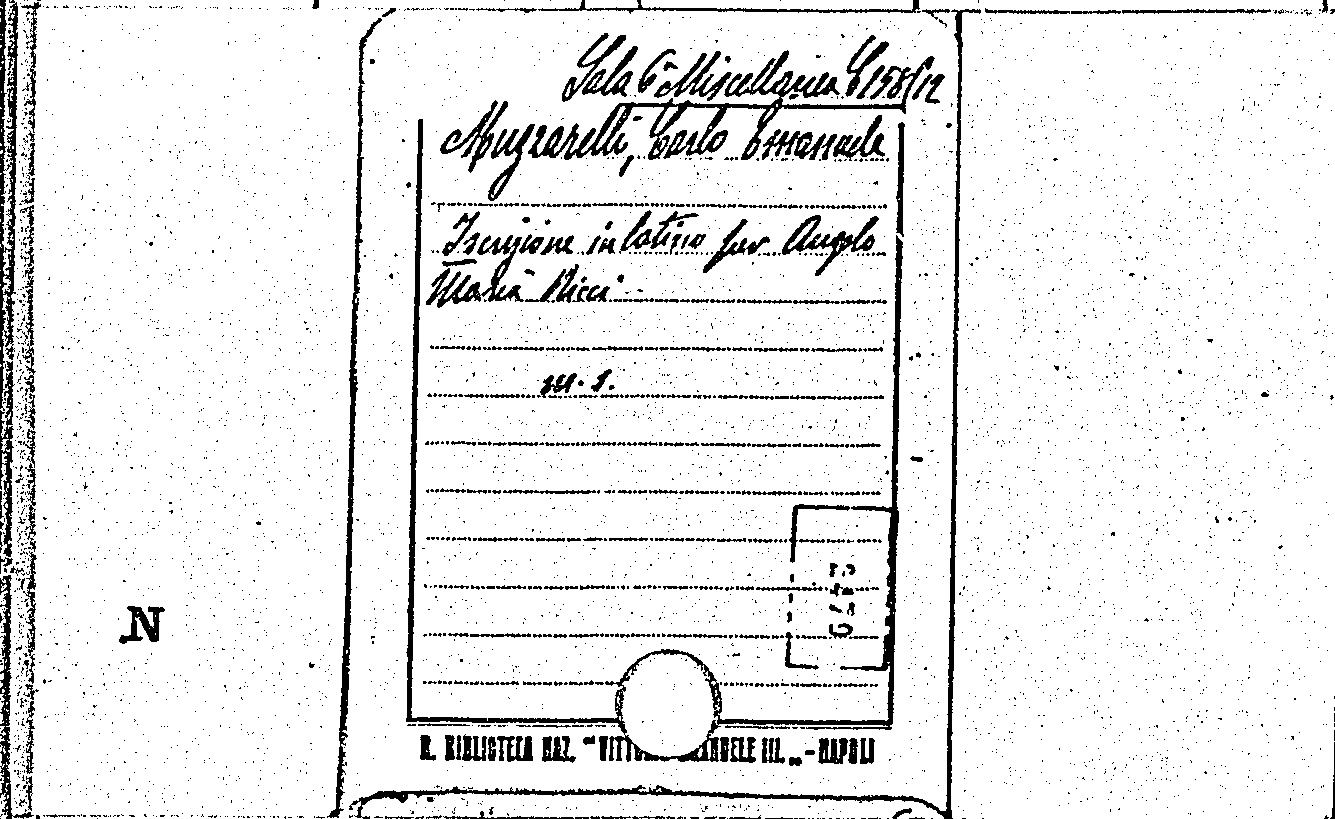 Sala 6ª Miscellanea C 158/12
Muzzarelli, Carlo Emanuele
Iscrizione in latino per Angelo
Maria Ricci
m. s.
N
R. BIBLIOTECA NAZ. "VITTO ANUELE III." - NAPOLI